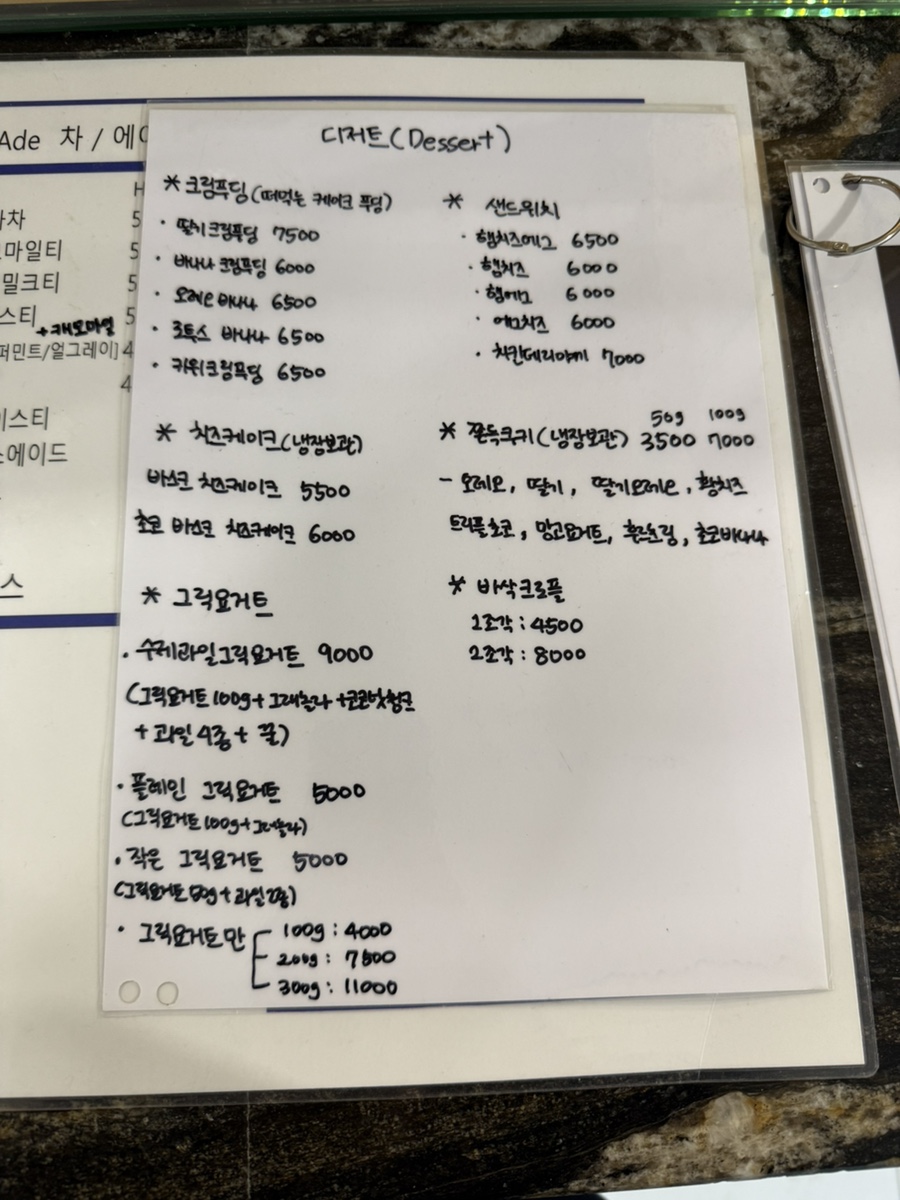 Ade 차 / 에
디저트(Dessert)
* 크림푸딩(떠먹는 케이크 푸딩)
· 딸기크림푸딩 7500
· 바나나 크림푸딩 6000
· 오레오 바나나 6500
· 로투스 바나나 6500
· 키위크림푸딩 6500
* 치즈케이크(냉장보관)
바스크 치즈케이크 5500
초코 바스크 치즈케이크 6000
* 그릭요거트
· 수제과일그릭요거트 9000
(그릭요거트 100g + 그래놀라 + 코코넛청크
+ 과일 4종 + 꿀)
· 플레인 그릭요거트 5000
(그릭요거트 100g + 그래놀라)
· 작은 그릭요거트 5000
(그릭요거트 + 과일2종)
· 그릭요거트만
100g : 4000
200g : 7500
300g : 11000
* 샌드위치
· 햄치즈에그 6500
· 햄치즈 6000
· 햄에그 6000
· 에그치즈 6000
· 치킨데리야끼 7000
50g 100g
* 쫀득쿠키(냉장보관) 3500 7000
- 오레오, 딸기, 딸기오레오, 황치즈
트리플초코, 망고요거트, 후르츠링, 초코바나나
* 바삭크로플
1조각 : 4500
2조각 : 8000
H
차 5
마일티 5
밀크티 5
스티 5
+캐모마일
퍼민트/얼그레이] 4
4
이스티
에이드
스